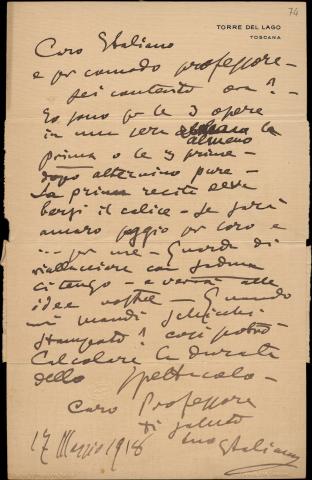 74
TORRE DEL LAGO
TOSCANA
Caro Italiano
e per comodo professore -
sei contento ora? -
Io sono per le 3 opere
in una sera almeno la
prima o le 3 prime -
dopo alternino pure -
La prima recita deve
bersi il calice - Se sarà
amaro peggio per loro e
... per me - Guarda di
riallacciare con
ci tengo - e verrà alle
idee nostre - Quando
mi mandi Schicchi
stampato? così potrò
calcolare la durata
dello spettacolo -
Caro Professore
ti saluto
tuo Italiano
17 Maggio 1918